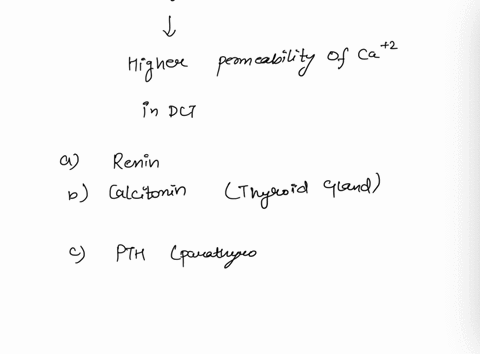 ↓
Higher permeability of Ca+2
in DCT
a) Renin
b) Calcitonin (Thyroid Gland)
c) PTH (parathyro